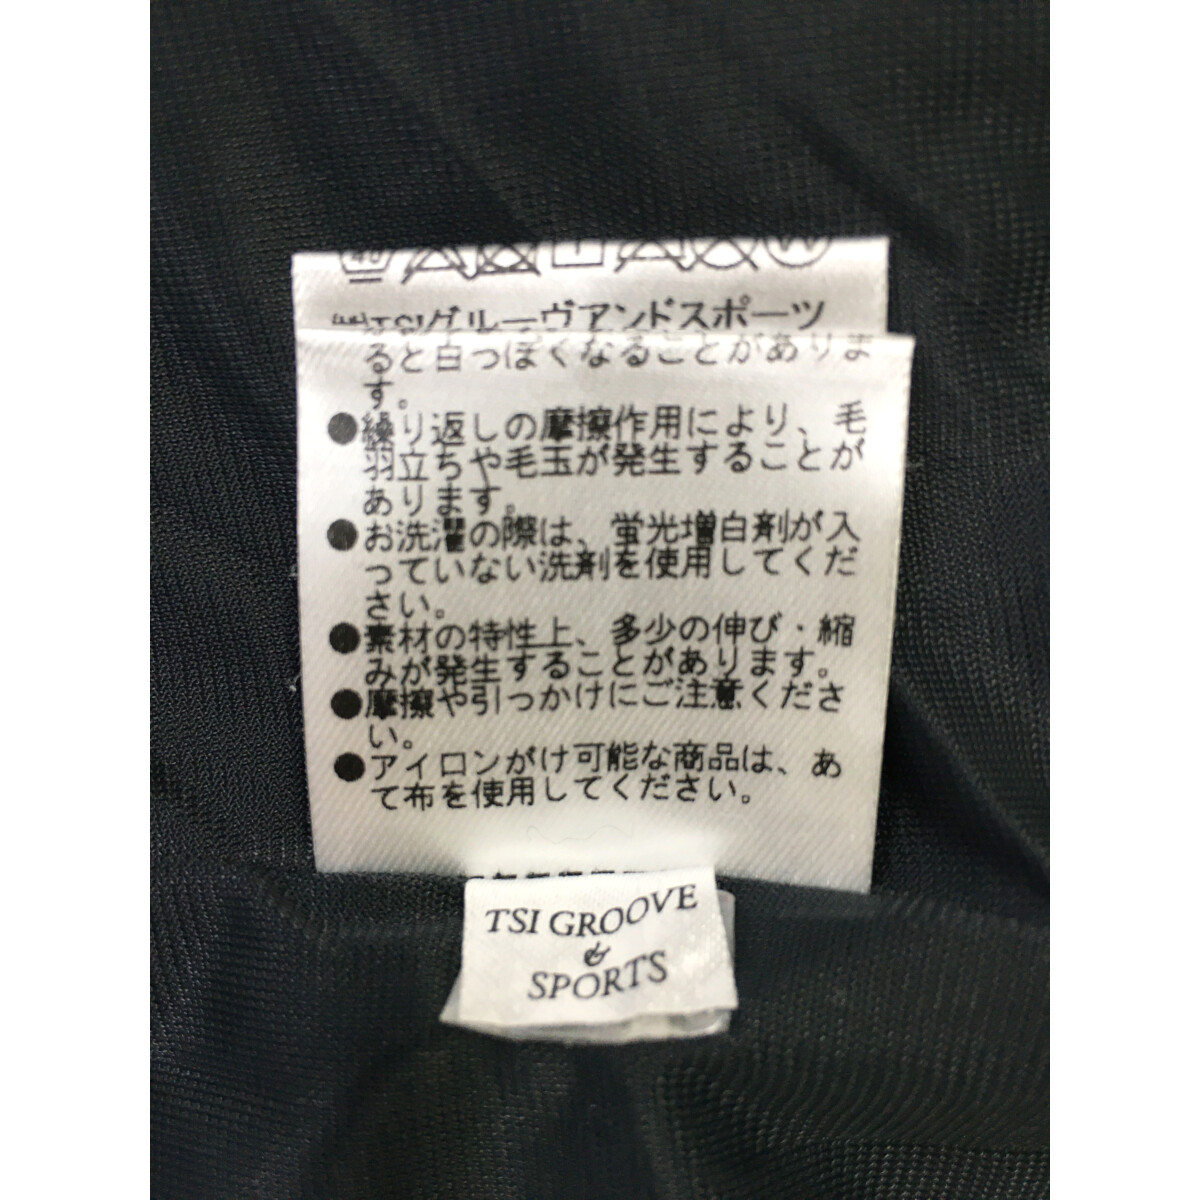 40
W
TSIグルーヴアンドスポーツ
ると白っぽくなることがありま
す。
●繰り返しの摩擦作用により、毛
羽立ちや毛玉が発生することが
あります。
●お洗濯の際は、蛍光増白剤が入
っていない洗剤を使用してくだ
さい。
●素材の特性上、多少の伸び・縮
みが発生することがあります。
●摩擦や引っかけにご注意くださ
い。
●アイロンがけ可能な商品は、あ
て布を使用してください。
TSI GROOVE
&
SPORTS